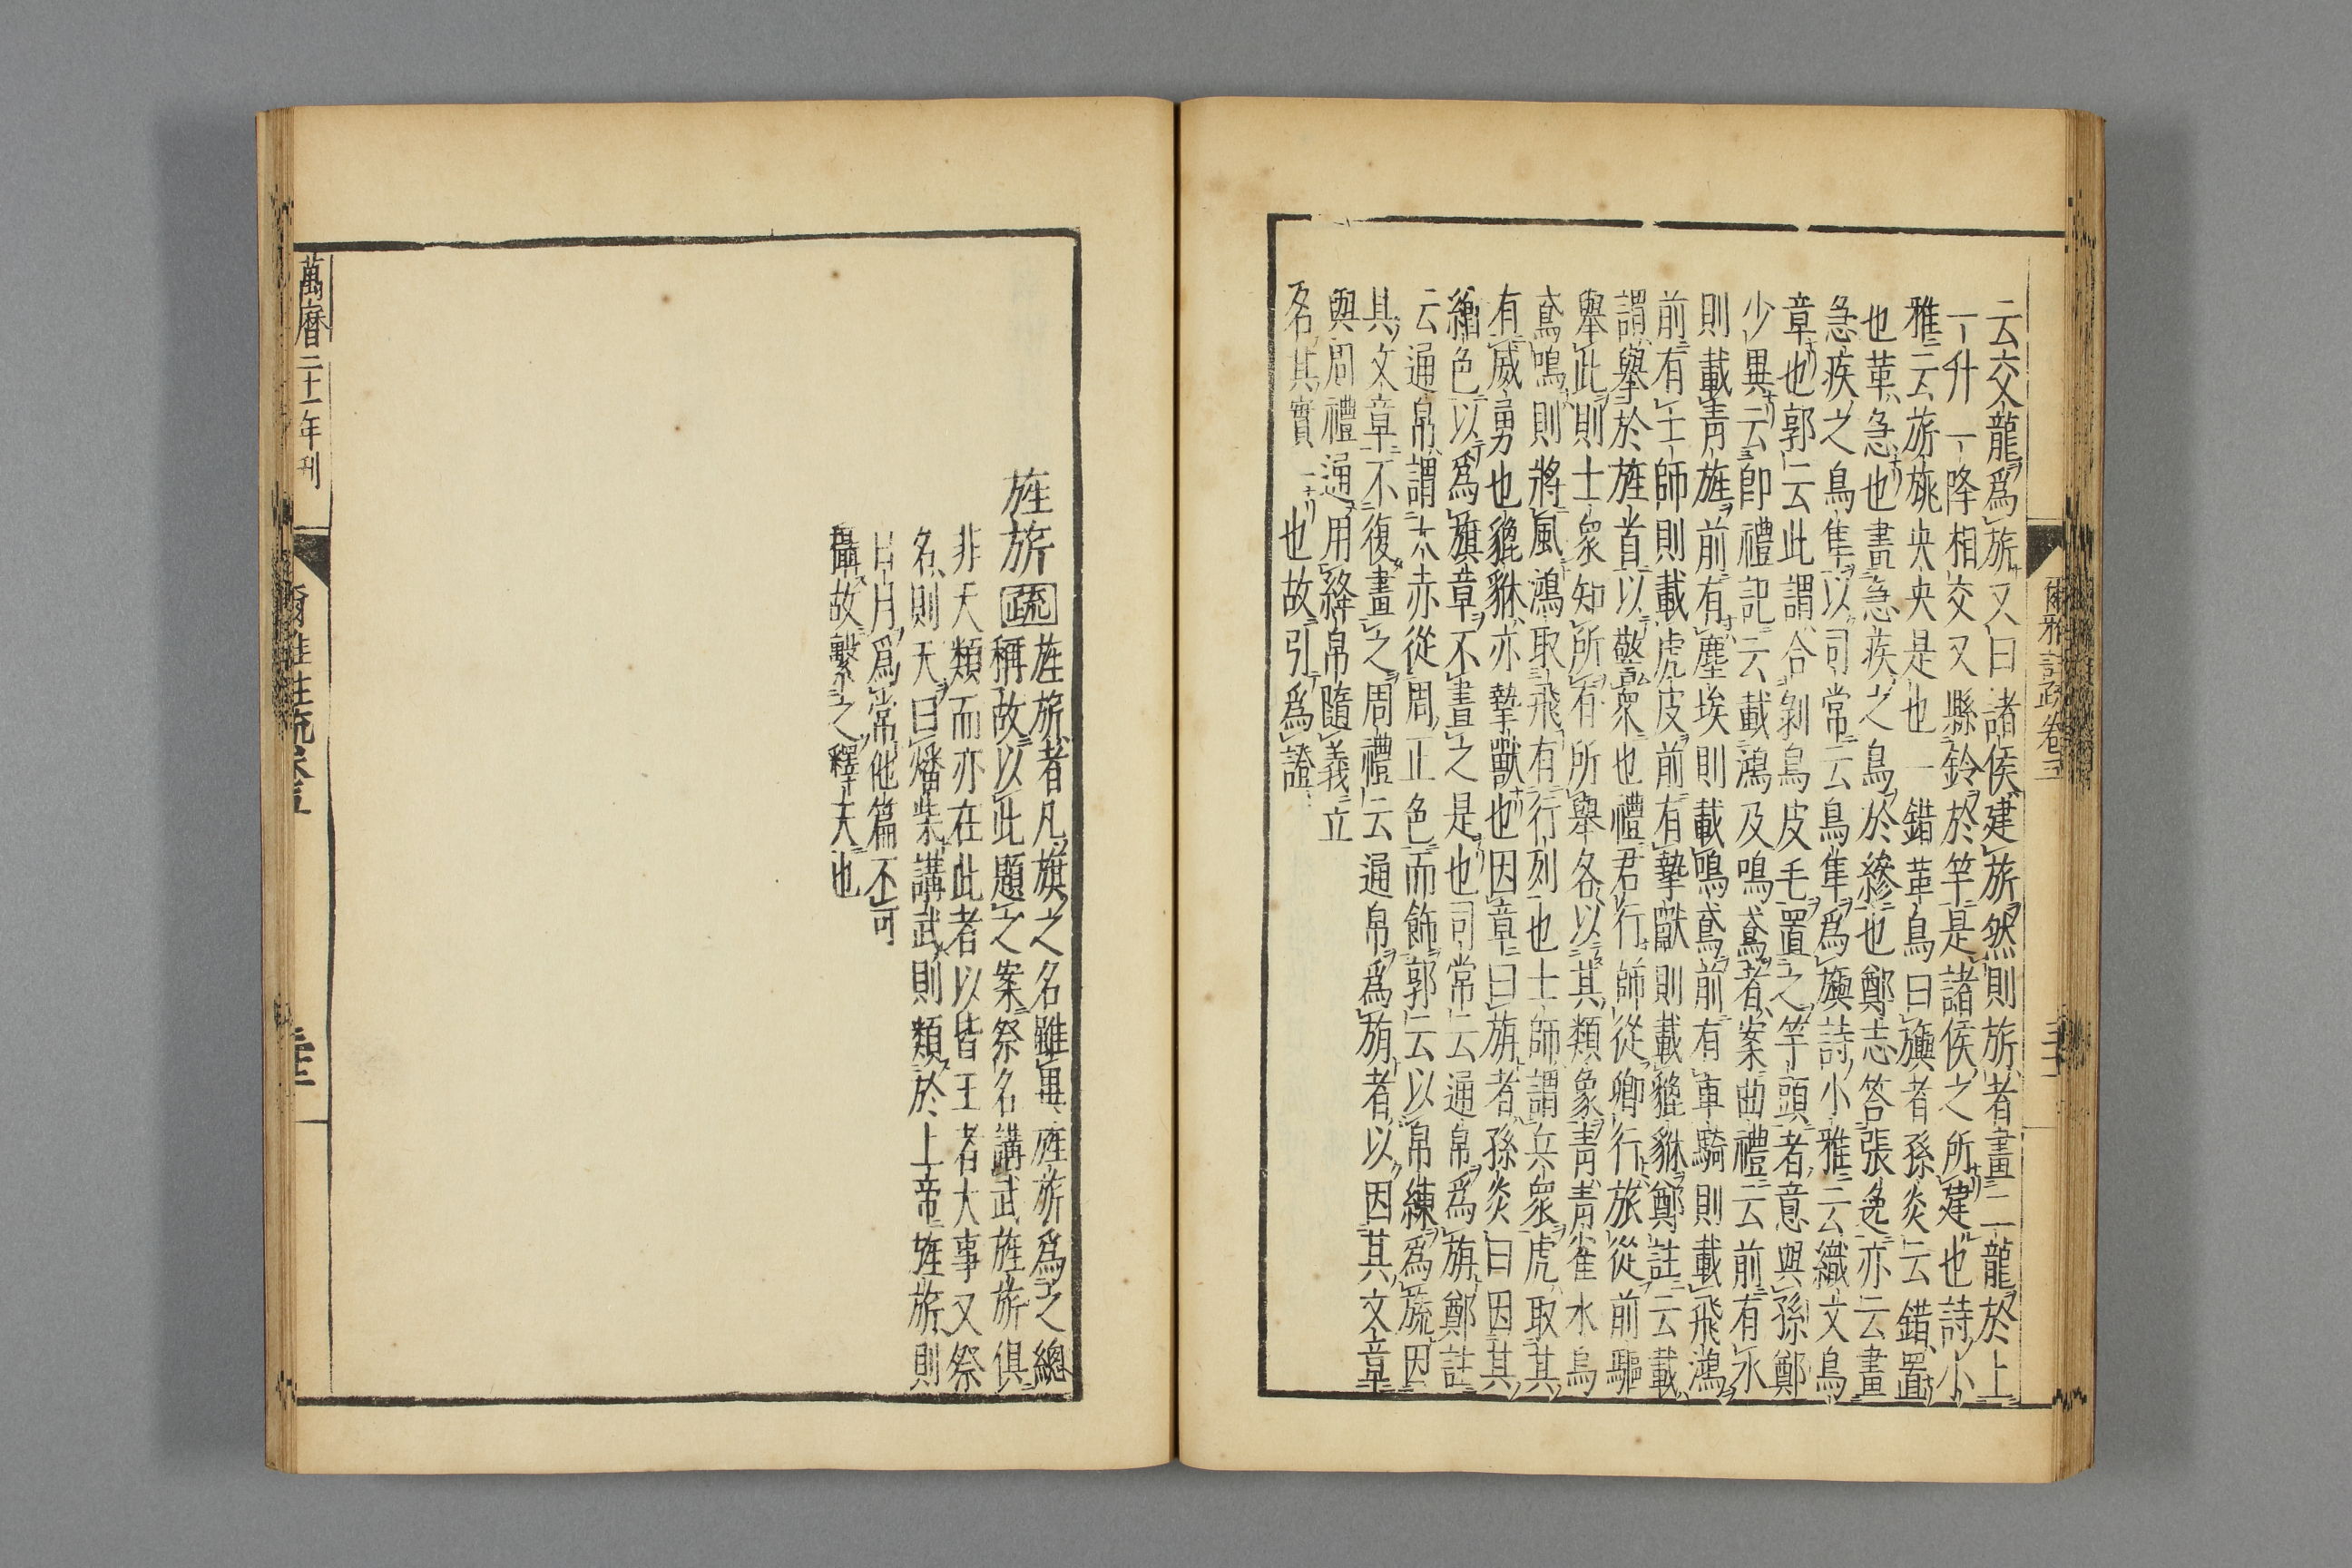 爾雅註疏卷五
云交龍爲旂又曰諸侯建旂然則旂者畫二龍於上
一升一降相交又縣鈴於竿是諸侯之所建也詩小
雅云旂旐央央是也一錯革鳥曰旟者孫炎云錯置
也革急也畫急疾之鳥於縿也鄭志荅張逸亦云畫
急疾之鳥隼以司常云鳥隼爲旟詩小雅云織文鳥
章也郭云此謂合剝鳥皮毛置之竿頭者意與孫鄭
少異云卽禮記云載鴻及鳴鳶者案曲禮云前有水
則載靑旌前有塵埃則載鳴鳶前有車騎則載飛鴻
前有士師則載虎皮前有摯獸則載貔貅鄭註云載
謂舉於旌首以警衆也禮君行師從卿行旅從前驅
舉此則士衆知所有所舉各以其類象靑靑雀水鳥
鳶鳴則將風鴻取飛有行列也士師謂兵衆虎取其
有威勇也貔貅亦摯獸也因章曰旃者孫炎曰因其
繒色以爲旗章不畫之是也司常云通帛爲旃鄭註
云通帛謂大赤從周正色而飾郭云以帛練爲旒因
其文章不復畫之周禮云通帛爲旃者以因其文章
與周禮通用絳帛隨義立
名其實一也故引爲證
旌旂疏旌旂者凡旗之名雖異旌旂爲之總
稱故以此題之案祭名講武旌旂俱
非天類而亦在此者以皆王者大事又祭
名則天曰燔柴講武則類於上帝旌旂則
日月爲常他篇不可
攝故繫之釋天也
萬曆二十一年刊
爾雅註疏卷五